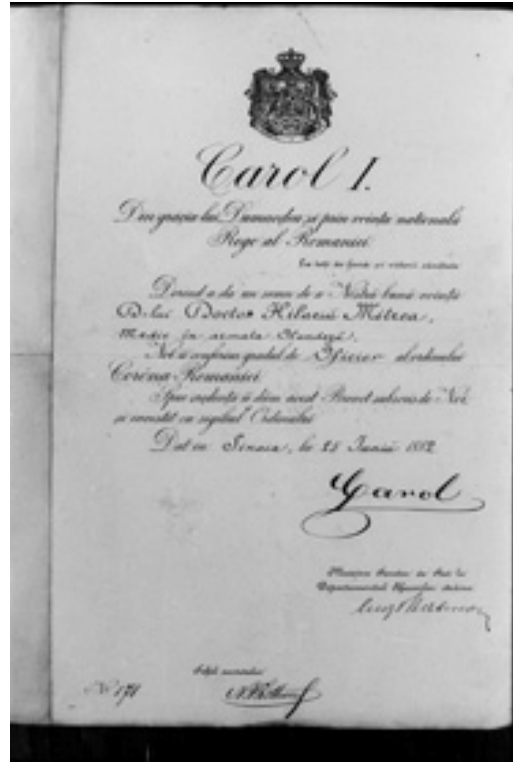 Carol I.
Din grația lui Dumnedeu și prin voința națională
Rege al Romaniei
La toți de față și viitori sănătate
Dorind a da un semn de a Nóstră bună voință
D-lui Doctor Hilariu Mitrea,
Medic in armata Olandeză,
Noi ii conferim gradul de Oficier al ordinului
Coróna Romaniei
Spre credință ii dăm acest Brevet subscris de Noi
și investit cu sigiliul Ordinului
Dat in Sinaia, la 25 Iunie 1882
Carol
Departamentul
No 171